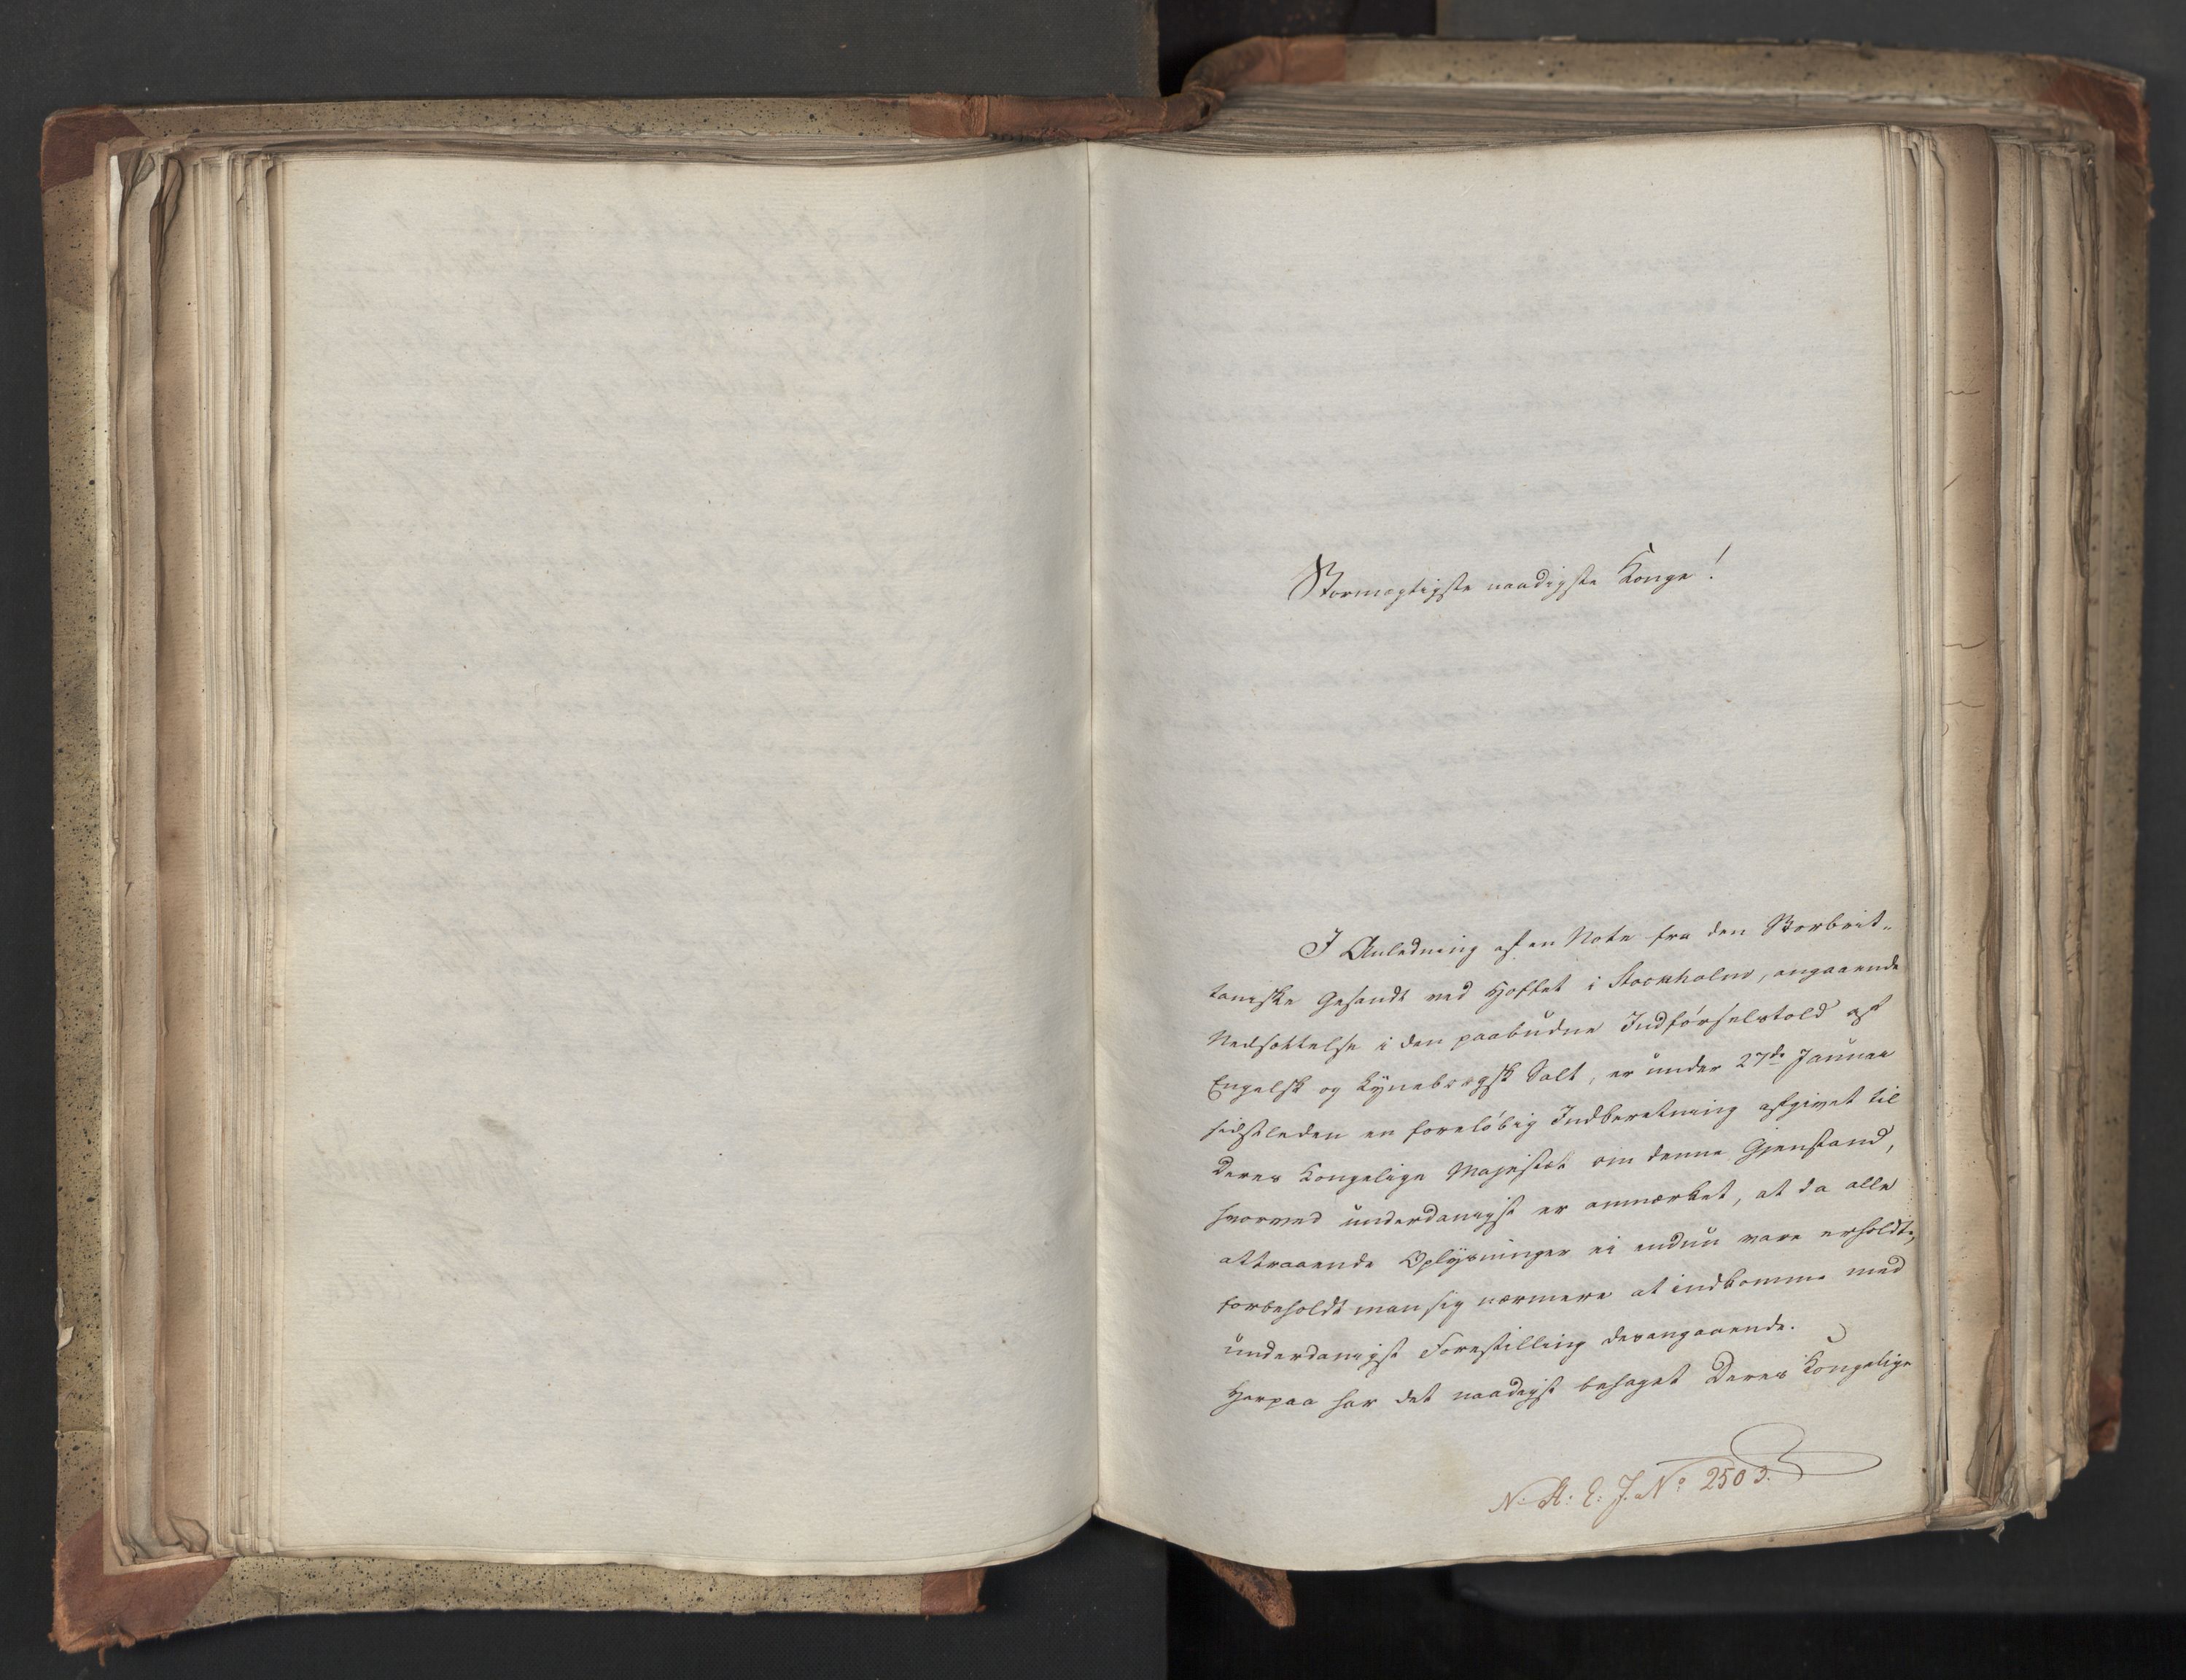 Stormægtigste naadigste Konge!
I Anledning af en Note fra den Storbrit-
taniske Gesandt ved Hoffet i Stockholm, angaaende
Nedsættelse i den paabudne Indførselstold af
Engelsk og Lyneborgsk Salt, er under 27de Januar
sidstleden en foreløbig Indberetning afgivet til
Deres Kongelige Majestæt om denne Gjenstand,
hvorved underdanigst er anmærket, at da alle
attraaende Oplysninger ei endnu vare erholdte,
forbeholdt man sig nærmere at indkomme med
underdanigst Forestilling desangaaende.
Herpaa har det naadigst behaget Deres Kongelige
N: A: E: J. No 2503.